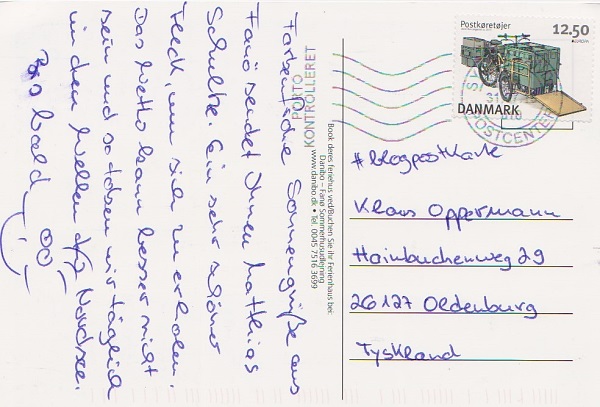 Sonnengrüße aus
Fanö sendet Ihnen Matthias
Ein sehr schöner
Fleck, um sich zu erholen.
Das Wetter kann besser nicht
sein und so toben wir täglich
in den Wellen der Nordsee.
Bis bald
PORTO
KONTROLLERET
Book deres feriehus ved/Buchen Sie ihr Ferienhaus bei:
Danibo – Fanø Sommerhusudlejning
www.danibo.dk • Tel. 0045 7516 3699
Postkøretøjer
12.50
DANMARK
POSTCENTER
#blogpostkarte
Klaus Oppermann
Hainbuchenweg 29
26127 Oldenburg
Tyskland